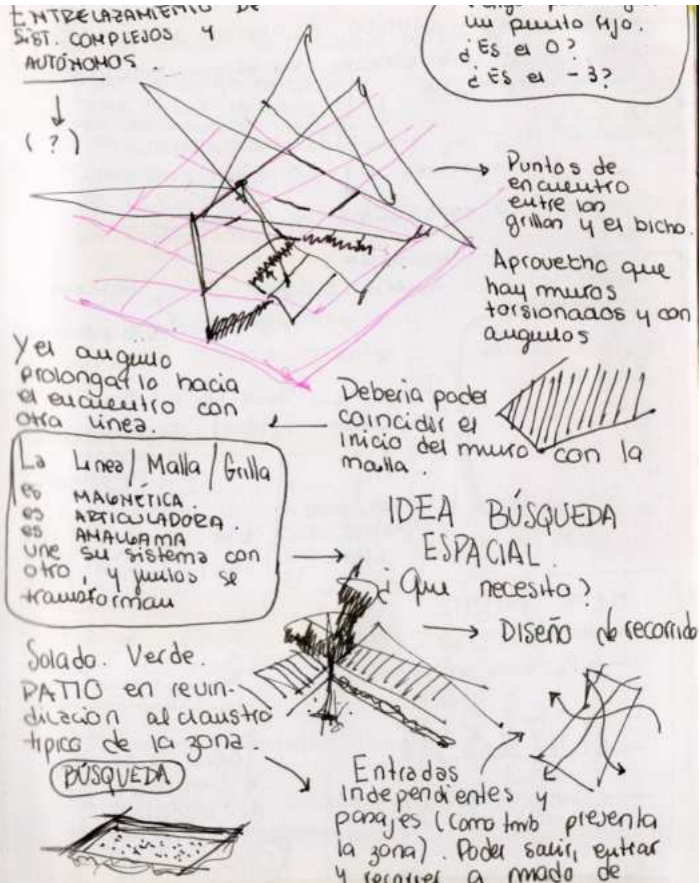 ENTRELAZAMIENTO DE
SIST. COMPLEJOS Y
AUTÓNOMOS.
(?)
un punto fijo.
¿Es el 0?
¿Es el -3?
Puntos de
encuentro
entre las
grillas y el bicho.
Aprovecho que
hay muros
torsionados y con
angulos
Y el angulo
prolongarlo hacia
el encuentro con
otra linea.
Deberia poder
coincidir el
inicio del muro con la
malla.
La Linea/Malla/Grilla
es MAGNÉTICA.
es ARTICULADORA.
es AMALGAMA
une su sistema con
otro, y juntos se
transforman
IDEA BÚSQUEDA
ESPACIAL.
¿Que necesito?
DISEÑO de recorrido
Solado. Verde.
PATIO en reivin-
dicacion al claustro
tipico de la zona.
BÚSQUEDA
Entradas
independientes y
pasajes (como tmb presenta
la zona). Poder salir, entrar
y recorrer a modo de